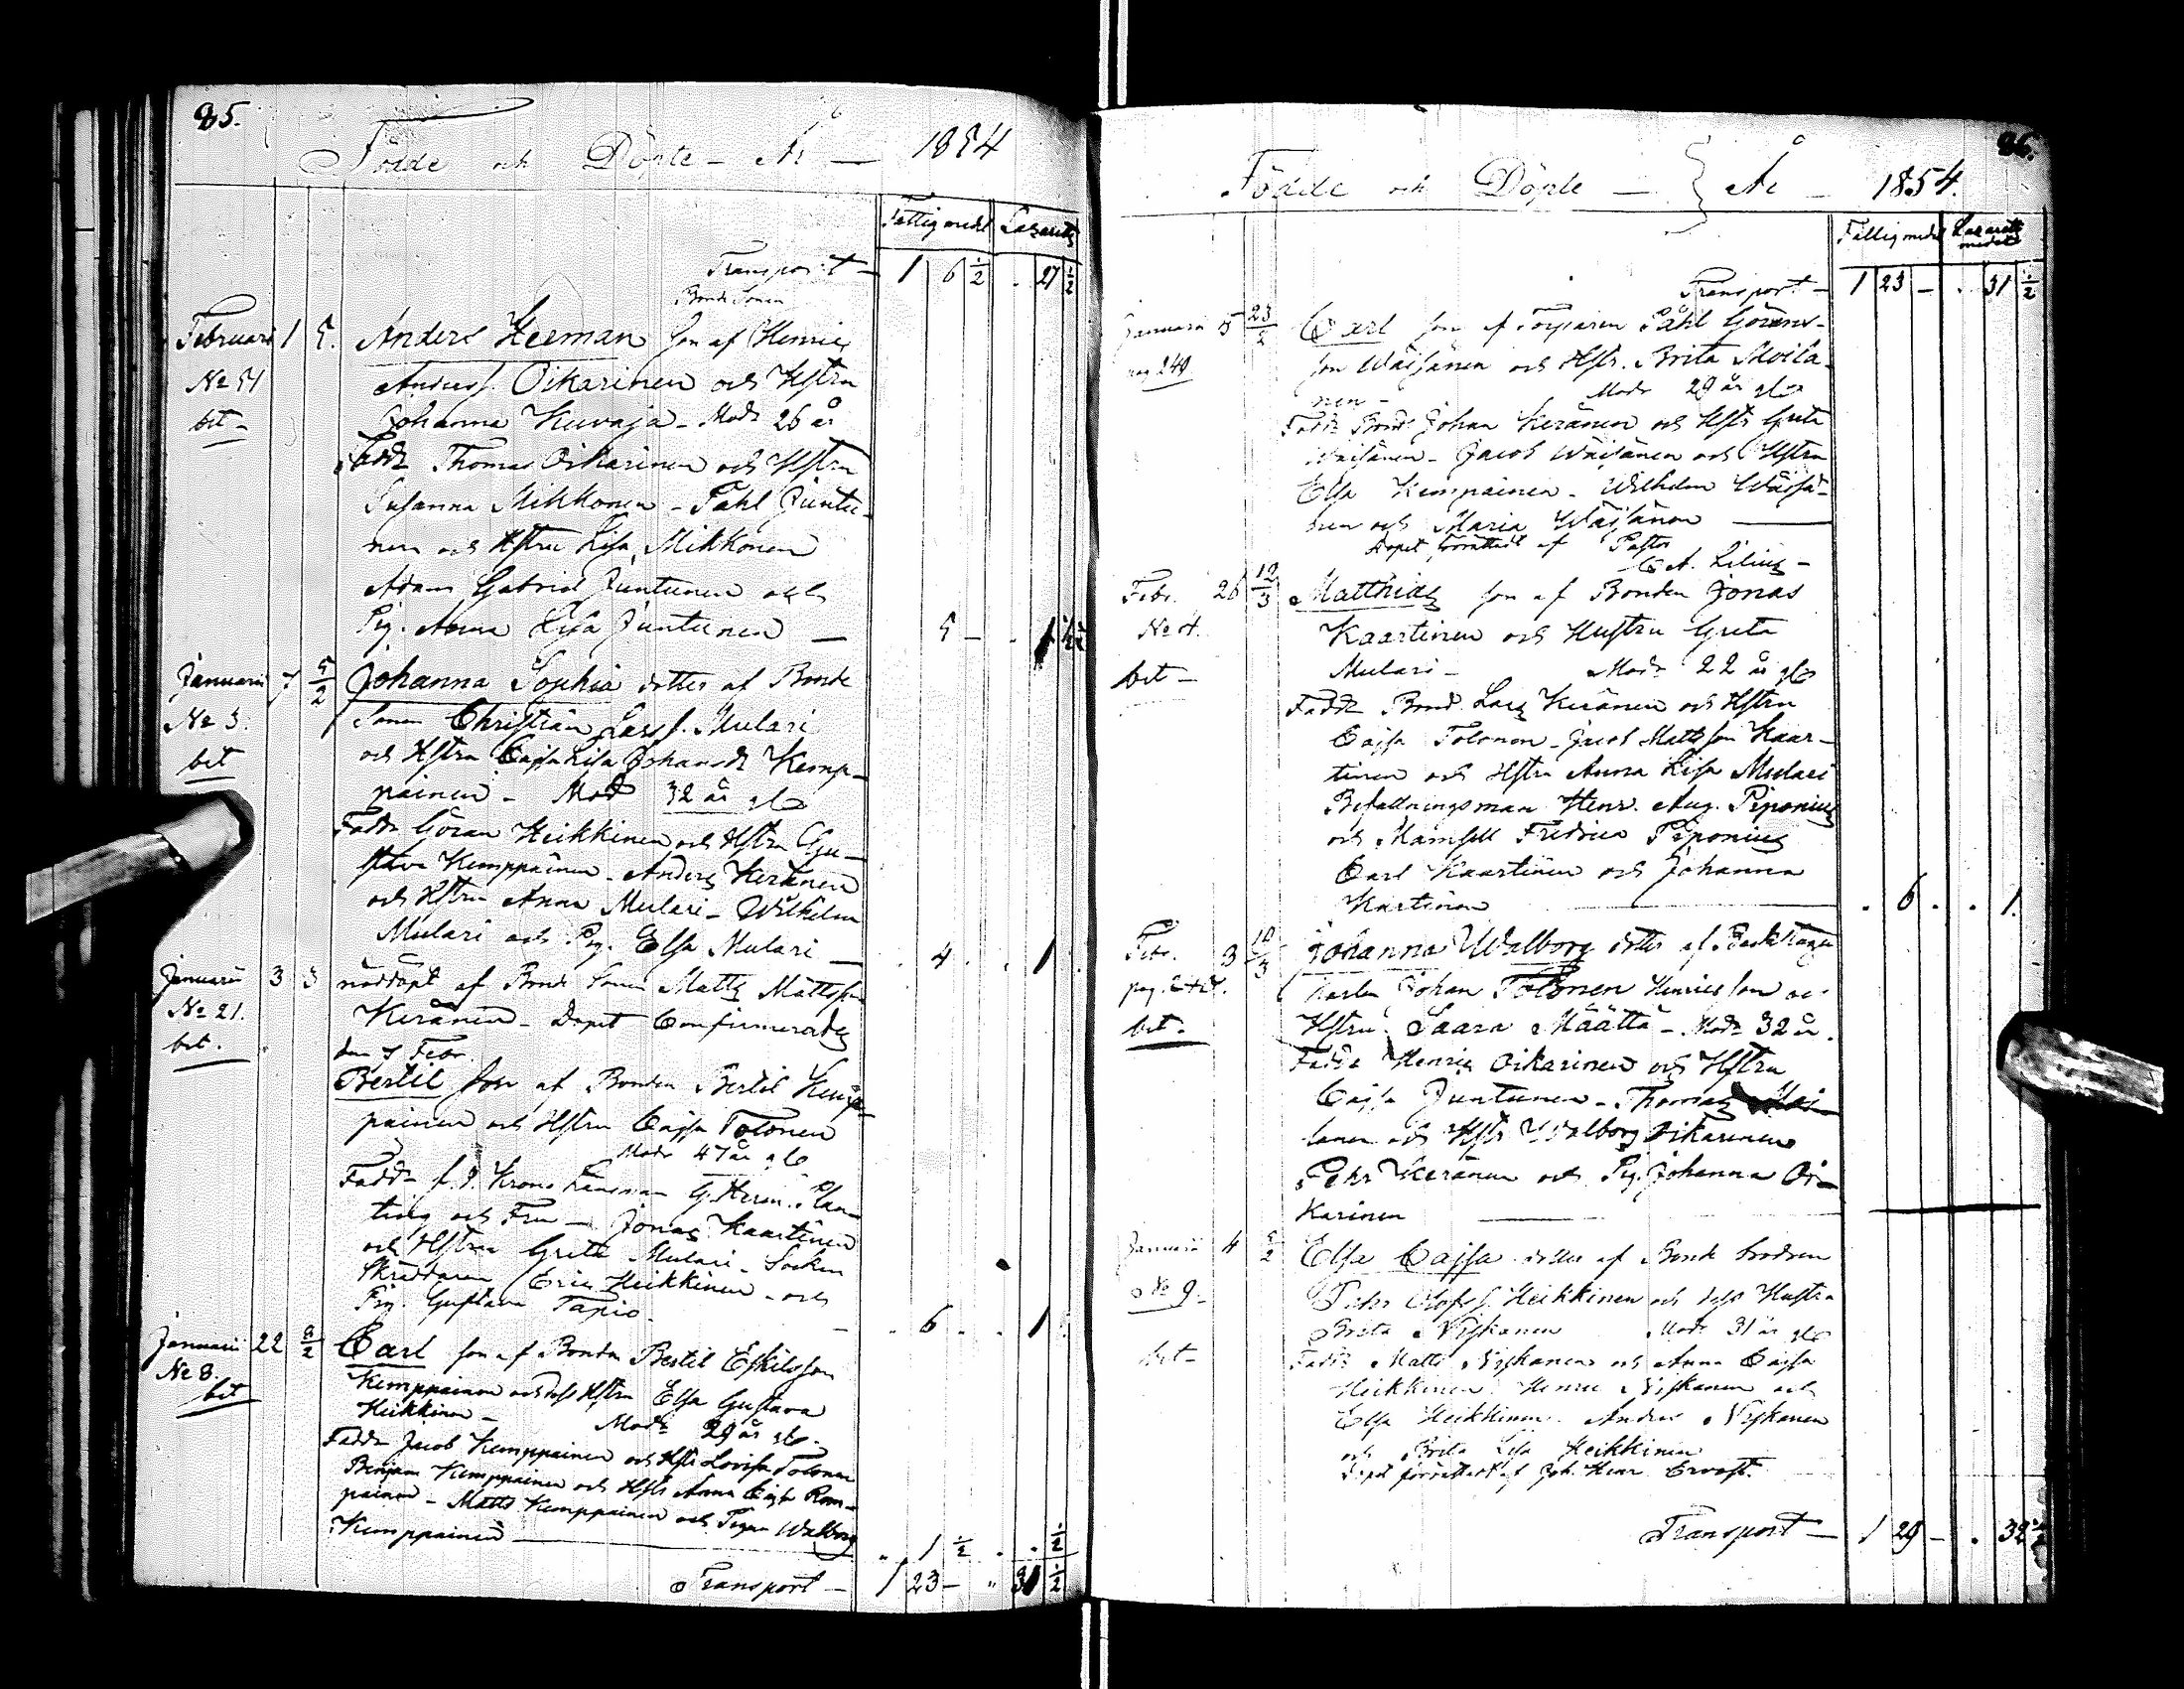 85.
Födde och Döpte - År - 1854
Fattigmedel Lazaretts
Transport - 1 6 1/2 . 27 1/2
Bonde Sonen
Februari 1 5. Anders Herman Son af Henric
No 51 Anderss. Oikarinen och Hstru
bet - Johanna Kuvaja - Modr 26 år
Faddr Thomas Oikarinen och Hstru
Susanna Mikkonen - Påhl Juntu-
nen och Hstru Lisa Mikkonen
Adam Gabriel Juntunen och
Pig. Anna Lisa Juntunen — 5 - . 1 1/2
Januarii 7 5/2 Johanna Sophia dotter af Bonde
No 3. Sonen Christian Larss. Mulari
bet och Hstru Cajsa Lisa Johansdr Kemp-
painen - Modr 32 år gl
Faddr Göran Heikkinen och Hstru Gu-
stava Kemppainen - Anders Keränen
och Hstru Anna Mulari - Wilhelm
Mulari och Pig. Elsa Mulari — . 4 . . 1
Januarii 3 3 nöddöpt af Bonde Sonen Matts Mattsson
No 21. Keränen - Dopet Confirmerades
bet. den 7 Febr.
Bertil Son af Bonden Bertil Kemp-
painen och Hstru Cajsa Tolonen
Modr 47 år gl
Faddr f.d. Krono Länsman G. Herm. Plan-
ting och Fru - Jonas Kaartinen
och Hstru Greta Mulari - Socken
Skräddaren Eric Heikkinen - och
Pig. Gustava Tapio. - . 6 . . 1
Januarii 22 8/2 Carl Son af Bonden Bertil Eskilsson
No 8. Kemppainen och dess Hstru Elsa Gustava
bet Heikkinen - Modr 29 år gl.
Faddr Jacob Kemppainen och Hstr Lovisa Tolonen
Benjam Kemppainen och Hstr Anna Cajsa Rom-
painen - Matts Kemppainen och Pigan Walborg
Kemppainen — . 1 1/2 . . 1/2
Transport - 1 23 - " 31 1/2
86.
Födde och Döpte - År - 1854.
Fattigmedel Lazaretts
medel
Transport - 1 23 - . 31 1/2
Januarii 15 23/2 Carl Son af Torparen Påhl Görans-
pag 249. son Wäisänen och Hstr. Brita Moila-
nen - Modr 29 år gl
Faddr Bond. Johan Keränen och Hstr Greta
Wäisänen - Jacob Wäisänen och Hstru
Elsa Kempainen - Wilhelm Wäisä-
nen och Maria Wäisänen —
Dopet förrättadt af Pastor
C A. Lilius -
Febr. 26 12/3 Matthias Son af Bonden Jonas
No 4. Kaartinen och Hustru Greta
bet - Mulari - Modr 22 år gl
Faddr Bond. Lars Keränen och Hstru
Cajsa Tolonen - Jacob Mattsson Kaar-
tinen och Hstru Anna Lisa Mulari
Befallningsman Henr. Aug. Piponius
och Mamsell Fredrica Piponius
Carl Kaartinen och Johanna
Kartinen — . 6 . . 1.
Febr. 3 10/3 Johanna Walborg dotter af Backstugu
pag. karlen Johan Tolonen Henricsson oc
bet - Hstru Saara Määttä - Modr 32 år.
Faddr Henric Oikarinen och Hstru
Cajsa Juntunen - Thomas Moi-
lanen och Hstr Walborg Oikarinen
Pehr Keränen och Pig. Johanna Oi-
karinen —
Januarii 4 5/2 Elsa Cajsa dotter af Bonde brodren
No 9 - Pehr Olofss. Heikkinen och dess Hustru
Brita Niskanen Modr 31 år gl
bet - Faddr Matts Niskanen och Anna Cajsa
Heikkinen Henric Niskanen och
Elsa Heikkinen. Anders Niskanen
och Brita Lisa Heikkinen
Dopet förrättadt af Joh. Henr Ervast.
Transport - 1 29 - . 32 1/2